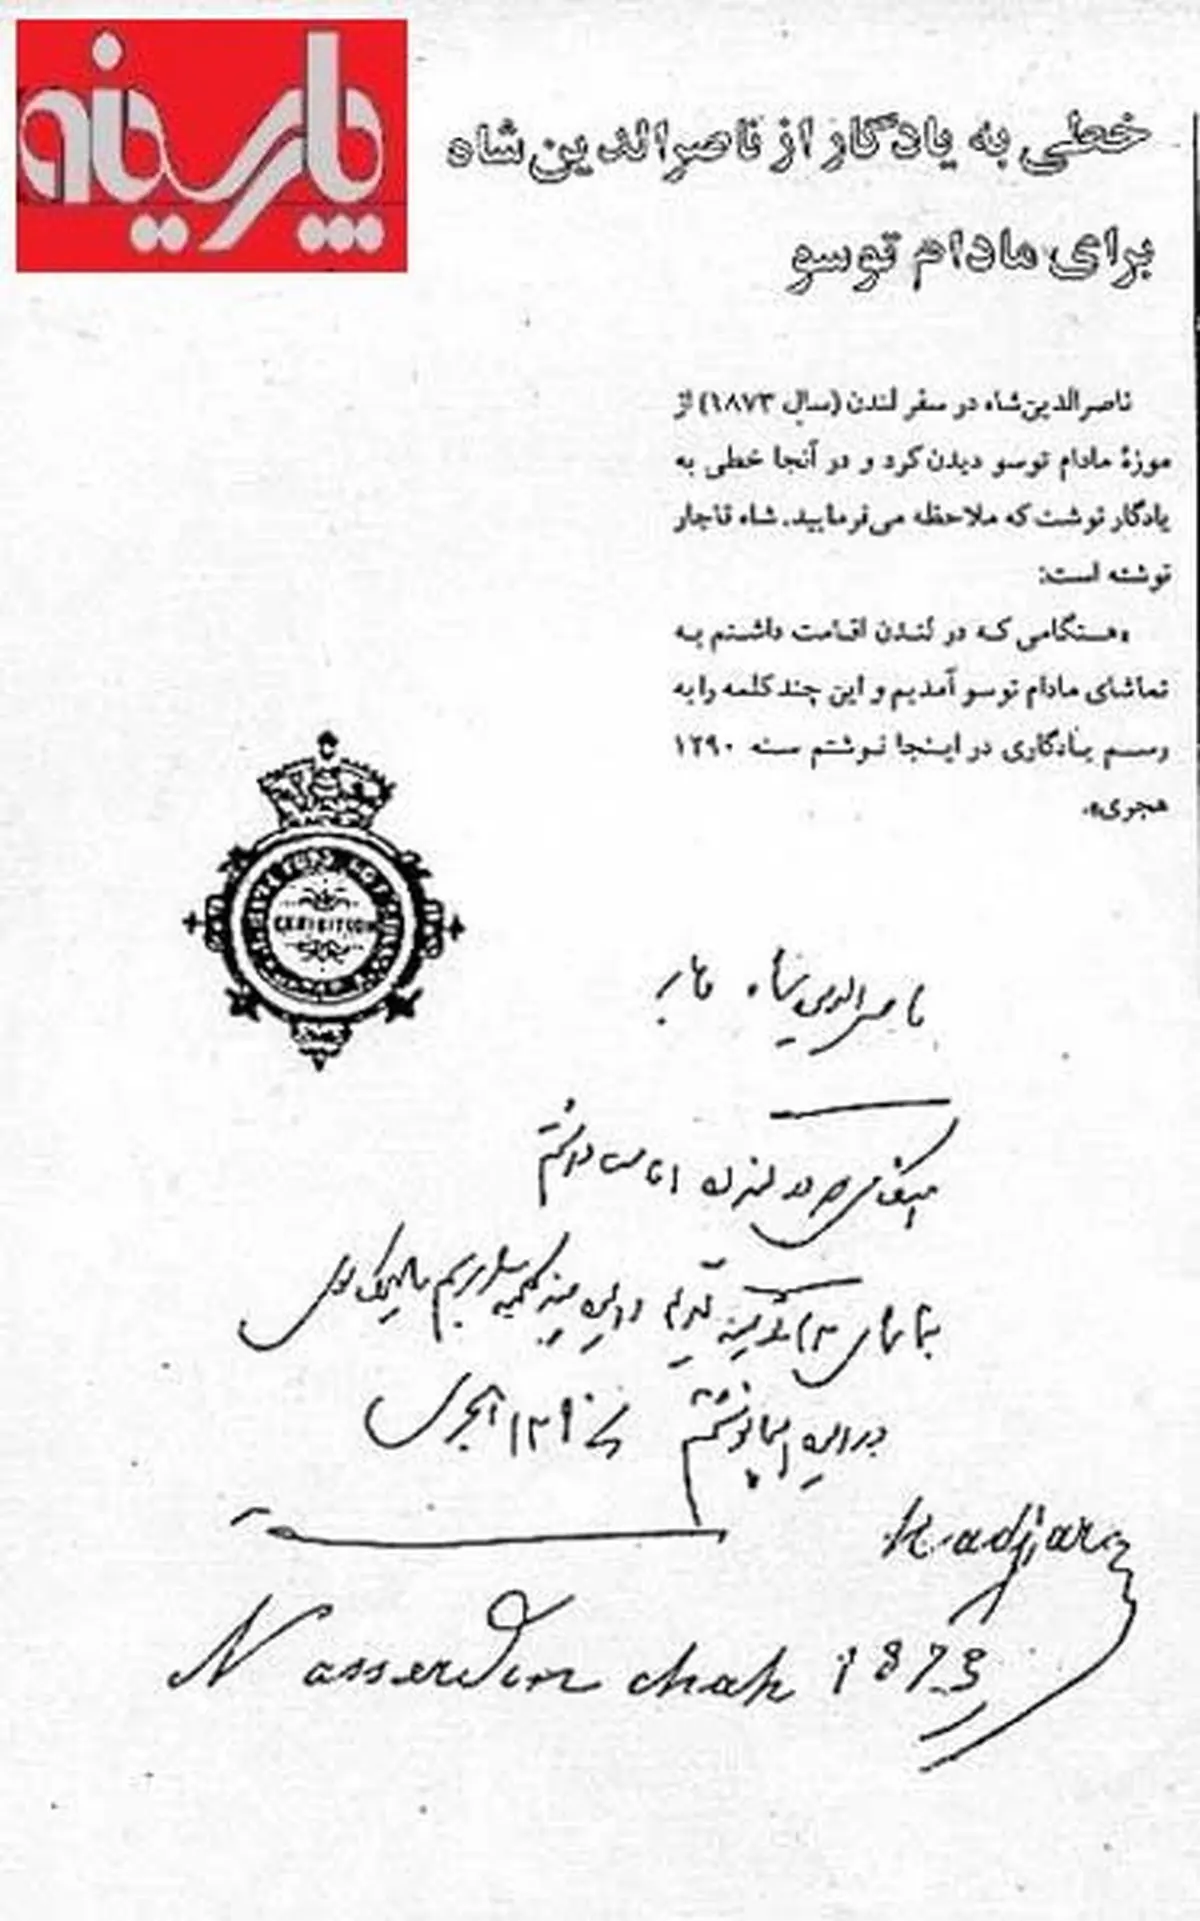 پارسینه
خطی به یادگار از ناصرالدین‌شاه
برای مادام توسو
ناصرالدین‌شاه در سفر لندن (سال ۱۸۷۳) از
موزهٔ مادام توسو دیدن کرد و در آنجا خطی به
یادگار نوشت که ملاحظه می‌فرمایید. شاه قاجار
نوشته است:
«هنگامی که در لندن اقامت داشتم به
تماشای مادام توسو آمدیم و این چند کلمه را به
رسم یادگاری در اینجا نوشتم سنه ۱۲۹۰
هجری».
EXHIBITION
ناصرالدین شاه قاجار
هنگامی که در لندن اقامت داشتم
بتماشای آمدیم و این چند کلمه را برسم
در اینجا نوشتم سنه ۱۲۹۰ هجری
Kadjar
Nasserdin chah 1873